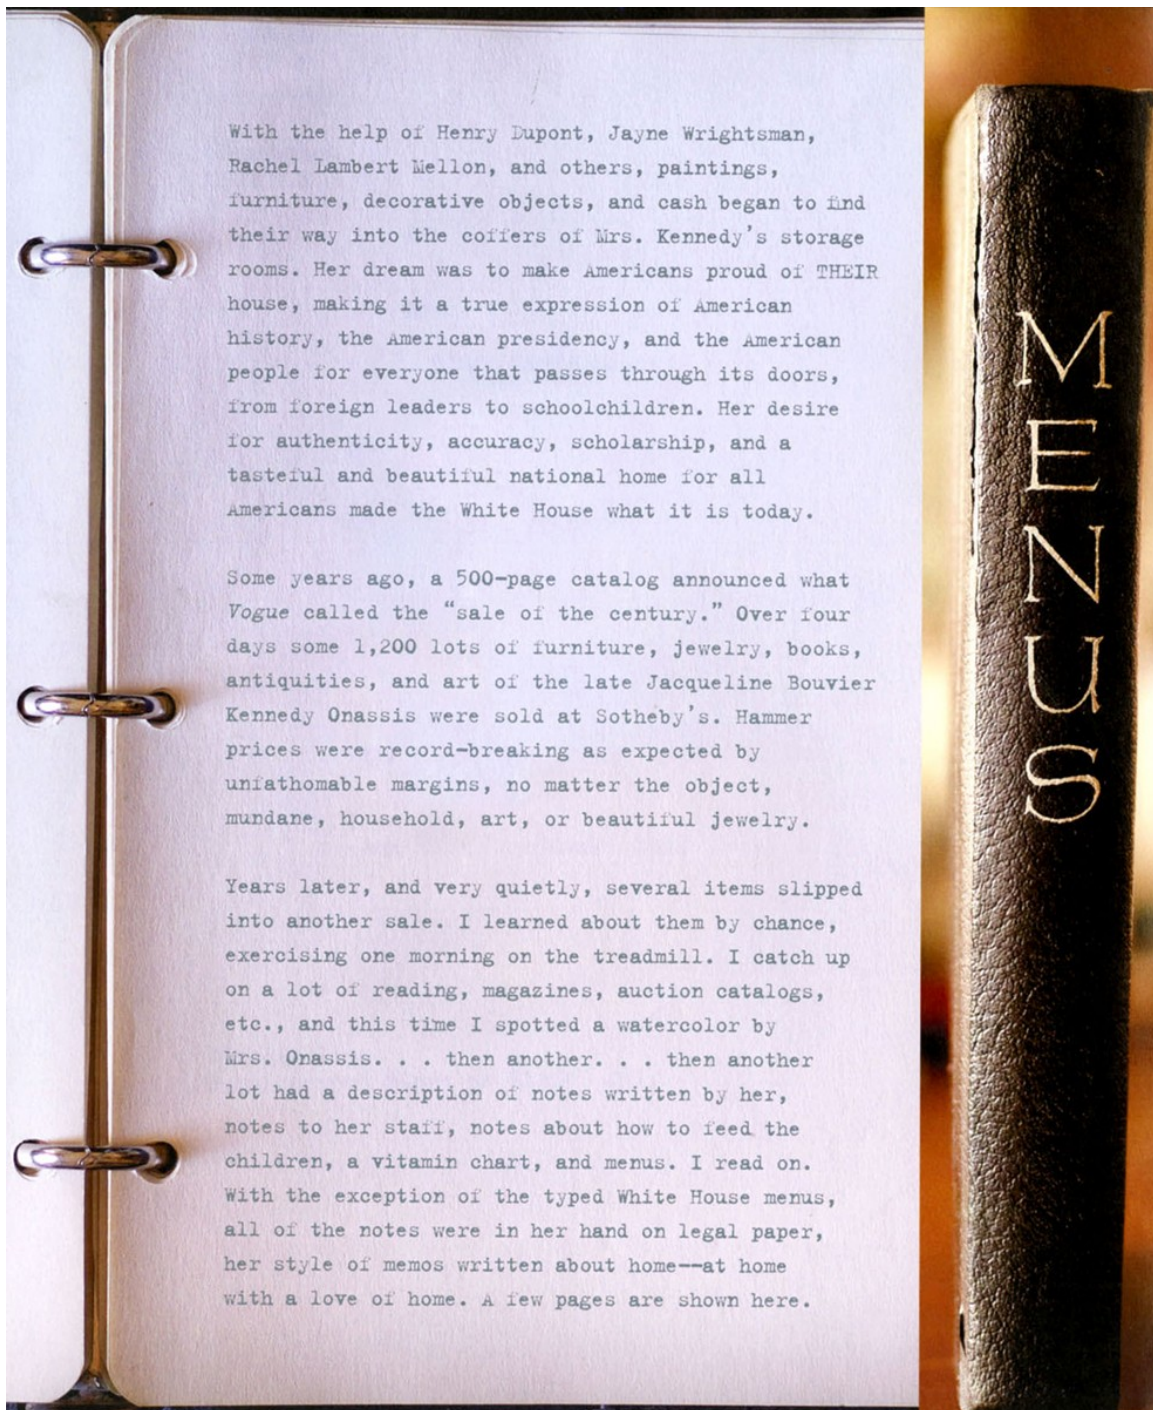 With the help of Henry Dupont, Jayne Wrightsman,
Rachel Lambert Mellon, and others, paintings,
furniture, decorative objects, and cash began to find
their way into the coffers of Mrs. Kennedy's storage
rooms. Her dream was to make Americans proud of THEIR
house, making it a true expression of American
history, the American presidency, and the American
people for everyone that passes through its doors,
from foreign leaders to schoolchildren. Her desire
for authenticity, accuracy, scholarship, and a
tasteful and beautiful national home for all
Americans made the White House what it is today.
Some years ago, a 500-page catalog announced what
Vogue called the “sale of the century.” Over four
days some 1,200 lots of furniture, jewelry, books,
antiquities, and art of the late Jacqueline Bouvier
Kennedy Onassis were sold at Sotheby's. Hammer
prices were record-breaking as expected by
unfathomable margins, no matter the object,
mundane, household, art, or beautiful jewelry.
Years later, and very quietly, several items slipped
into another sale. I learned about them by chance,
exercising one morning on the treadmill. I catch up
on a lot of reading, magazines, auction catalogs,
etc., and this time I spotted a watercolor by
Mrs. Onassis. . . then another. . . then another
lot had a description of notes written by her,
notes to her staff, notes about how to feed the
children, a vitamin chart, and menus. I read on.
With the exception of the typed White House menus,
all of the notes were in her hand on legal paper,
her style of memos written about home--at home
with a love of home. A few pages are shown here.
MENUS